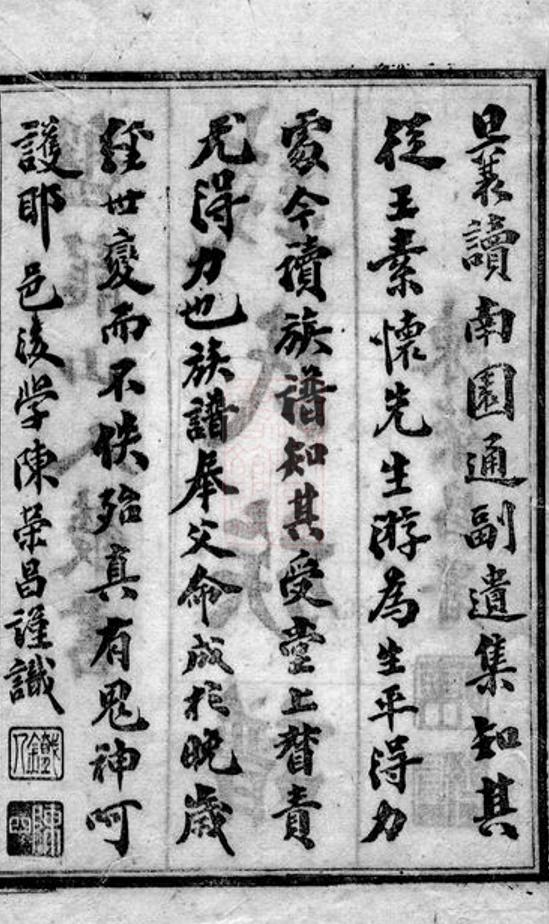 曩讀南園通副遺集知其
從王素懷先生游為生平得力
處今續族譜知其受堂上督責
尤得力也族譜奉父命成於晚歲
經世變而不佚殆真有鬼神呵
護耶邑後學陳榮昌謹識